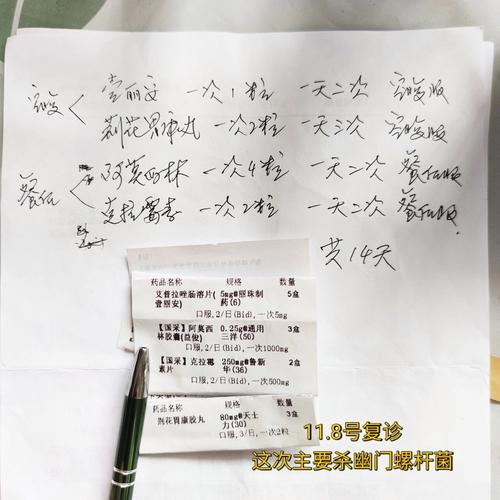 空腹 壹丽安 一次1粒 一天二次 空腹服
荆花胃康丸 一次2粒 一天三次 空腹服
餐后 阿莫西林 一次4粒 一天二次 餐后服
克拉霉素 一次2粒 一天二次 餐后服
共14天
药品名称 规格 数量
艾普拉唑肠溶片( 5mg*丽珠制 5盒
壹丽安) 药(6)
口服,2/日(Bid),一次5mg
【国采】阿莫西 0.25g*通用 3盒
林胶囊(益俊) 三洋(50)
口服,2/日(Bid),一次1000mg
【国采】克拉霉 250mg*鲁新 2盒
素片 华(36)
口服,2/日(Bid),一次500mg
药品名称 规格 数量
荆花胃康胶丸 80mg*天士 3盒
力(30)
口服,3/日,一次2粒
11.8号复诊
这次主要杀幽门螺杆菌